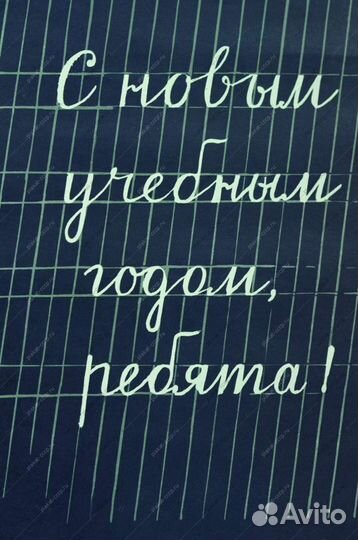 С новым
учебным
годом,
ребята!
Avito